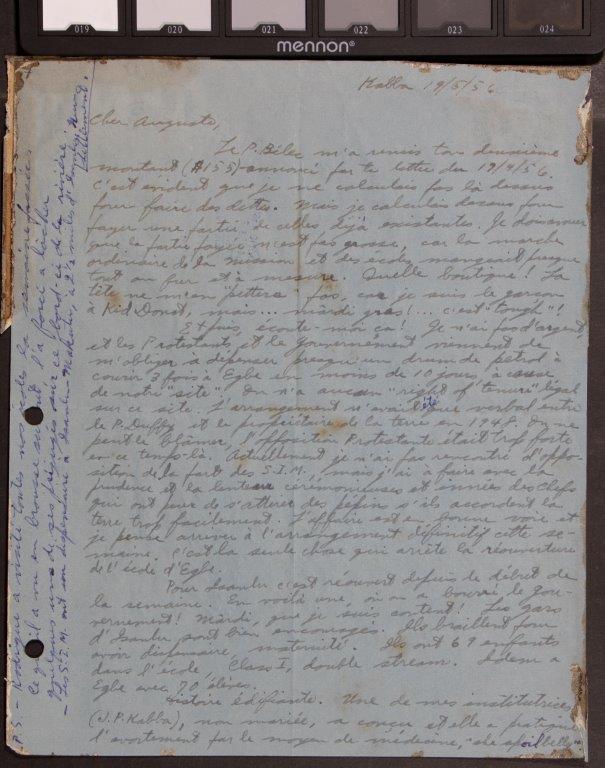 019 020 021 022 023 024
mennon®
Kabba 19/5/56
Cher Auguste,
Le P. Bélec m'a remis ton deuxième
montant ($155) annoncé par ta lettre du 19/4/56.
C'est évident que je ne calculais pas là dessus
pour faire des dettes. Mais je calculais dessus pour
payer une partie de celles déjà existantes. Je dois avouer
que la partie payée n'est pas grosse, car la marche
ordinaire de la mission et des écoles mangeait presque
tout au fur et à mesure. Quelle boutique! La
tête ne m'en pettera pas, car je suis le garçon
à Kid Donat, mais... mardi gras!... c'est "tough"!
Et puis, écoute-moi ça! Je n'ai pas d'argent,
et les Protestants et le gouvernement viennent de
m'obliger à dépenser presqu'un drum de pétrol à
courir 3 fois à Egbe en moins de 10 jours à cause
de notre site". On n'a aucun "right of tenure" légal
sur ce site. L'arrangement n'avait été que verbal entre
le P. Duffy et le propriétaire de la terre en 1948. On ne
peut le blâmer, l'opposition Protestante était trop forte
en ce temps-là. Actuellement je n'ai pas rencontré d'oppo-
sition de la part des S.I.M., mais j'ai à faire avec la
prudence et la lenteur cérémonieuses et innées des chefs
qui ont peur de s'attirer des pépins s'ils accordent la
terre trop facilement. L'affaire est en bonne voie et
je pense arriver à l'arrangement définitif cette se-
maine. C'est la seule chose qui arrête la réouverture
de l'école d'Egbe.
Pour Isanlu c'est réouvert depuis le début de
la semaine. En voilà une, où on a bourré le gou-
vernement! Mardi, que je suis content! Les gars
d'Isanlu sont bien encouragés. Ils braillent pour
avoir dispensaire, maternité. Ils ont 67 enfants
dans l'école, Class I, double stream. Idem à
Egbe avec 70 élèves.
Histoire édifiante. Une de mes institutrices
(J.P. Kabba), non mariée, a conçu et elle a pratiqué
l'avortement par le moyen de médecine, "she spoil belly"
P.S. - Rodrigue a visité toutes nos écoles la semaine passée
Ce qu'il a vu en brousse surtout l'a forcé à lâcher
quelques uns de ses préjugés sur ce bord-ci de la rivière.
- Les S.I.M. ont son dispensaire à Isanlu-Makutu, à 2 ½ milles d'Isanlu